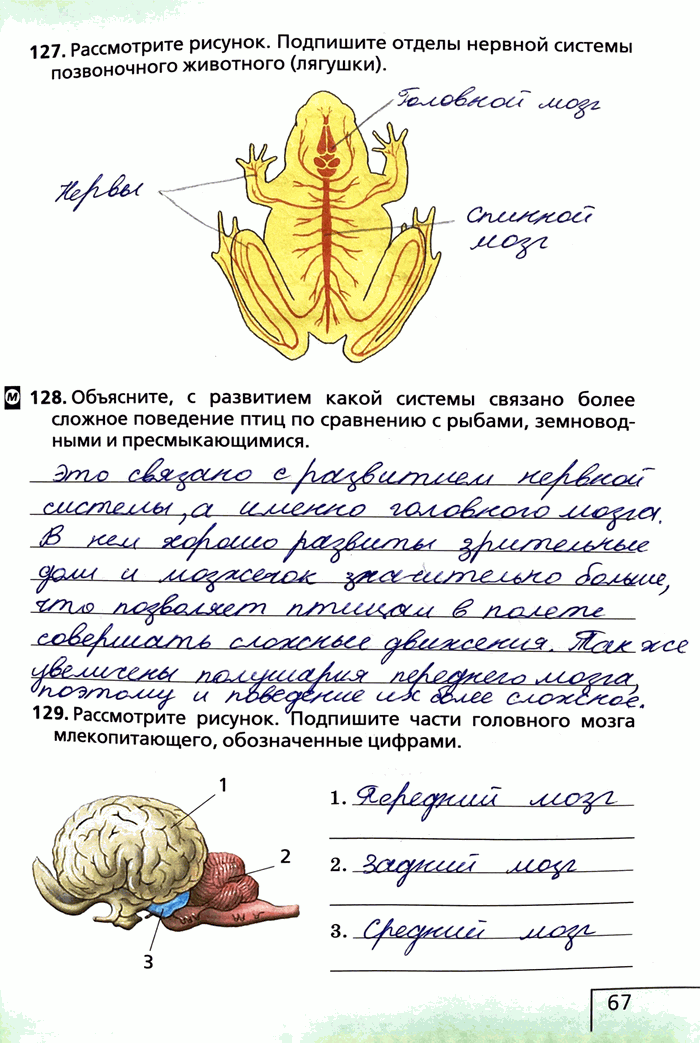 127. Рассмотрите рисунок. Подпишите отделы нервной системы
позвоночного животного (лягушки).
Головной мозг
Нервы
спинной
мозг
М 128. Объясните, с развитием какой системы связано более
сложное поведение птиц по сравнению с рыбами, земновод-
ными и пресмыкающимися.
это связано с развитием нервной
системы, а именно головного мозга.
В нем хорошо развиты зрительные
доли и мозжечок значительно больше,
что позволяет птицам в полете
совершать сложные движения. Так же
увеличены полушария переднего мозга,
поэтому и поведение их более сложное.
129. Рассмотрите рисунок. Подпишите части головного мозга
млекопитающего, обозначенные цифрами.
1
2
3
1. Передний мозг
2. Задний мозг
3. Средний мозг
67